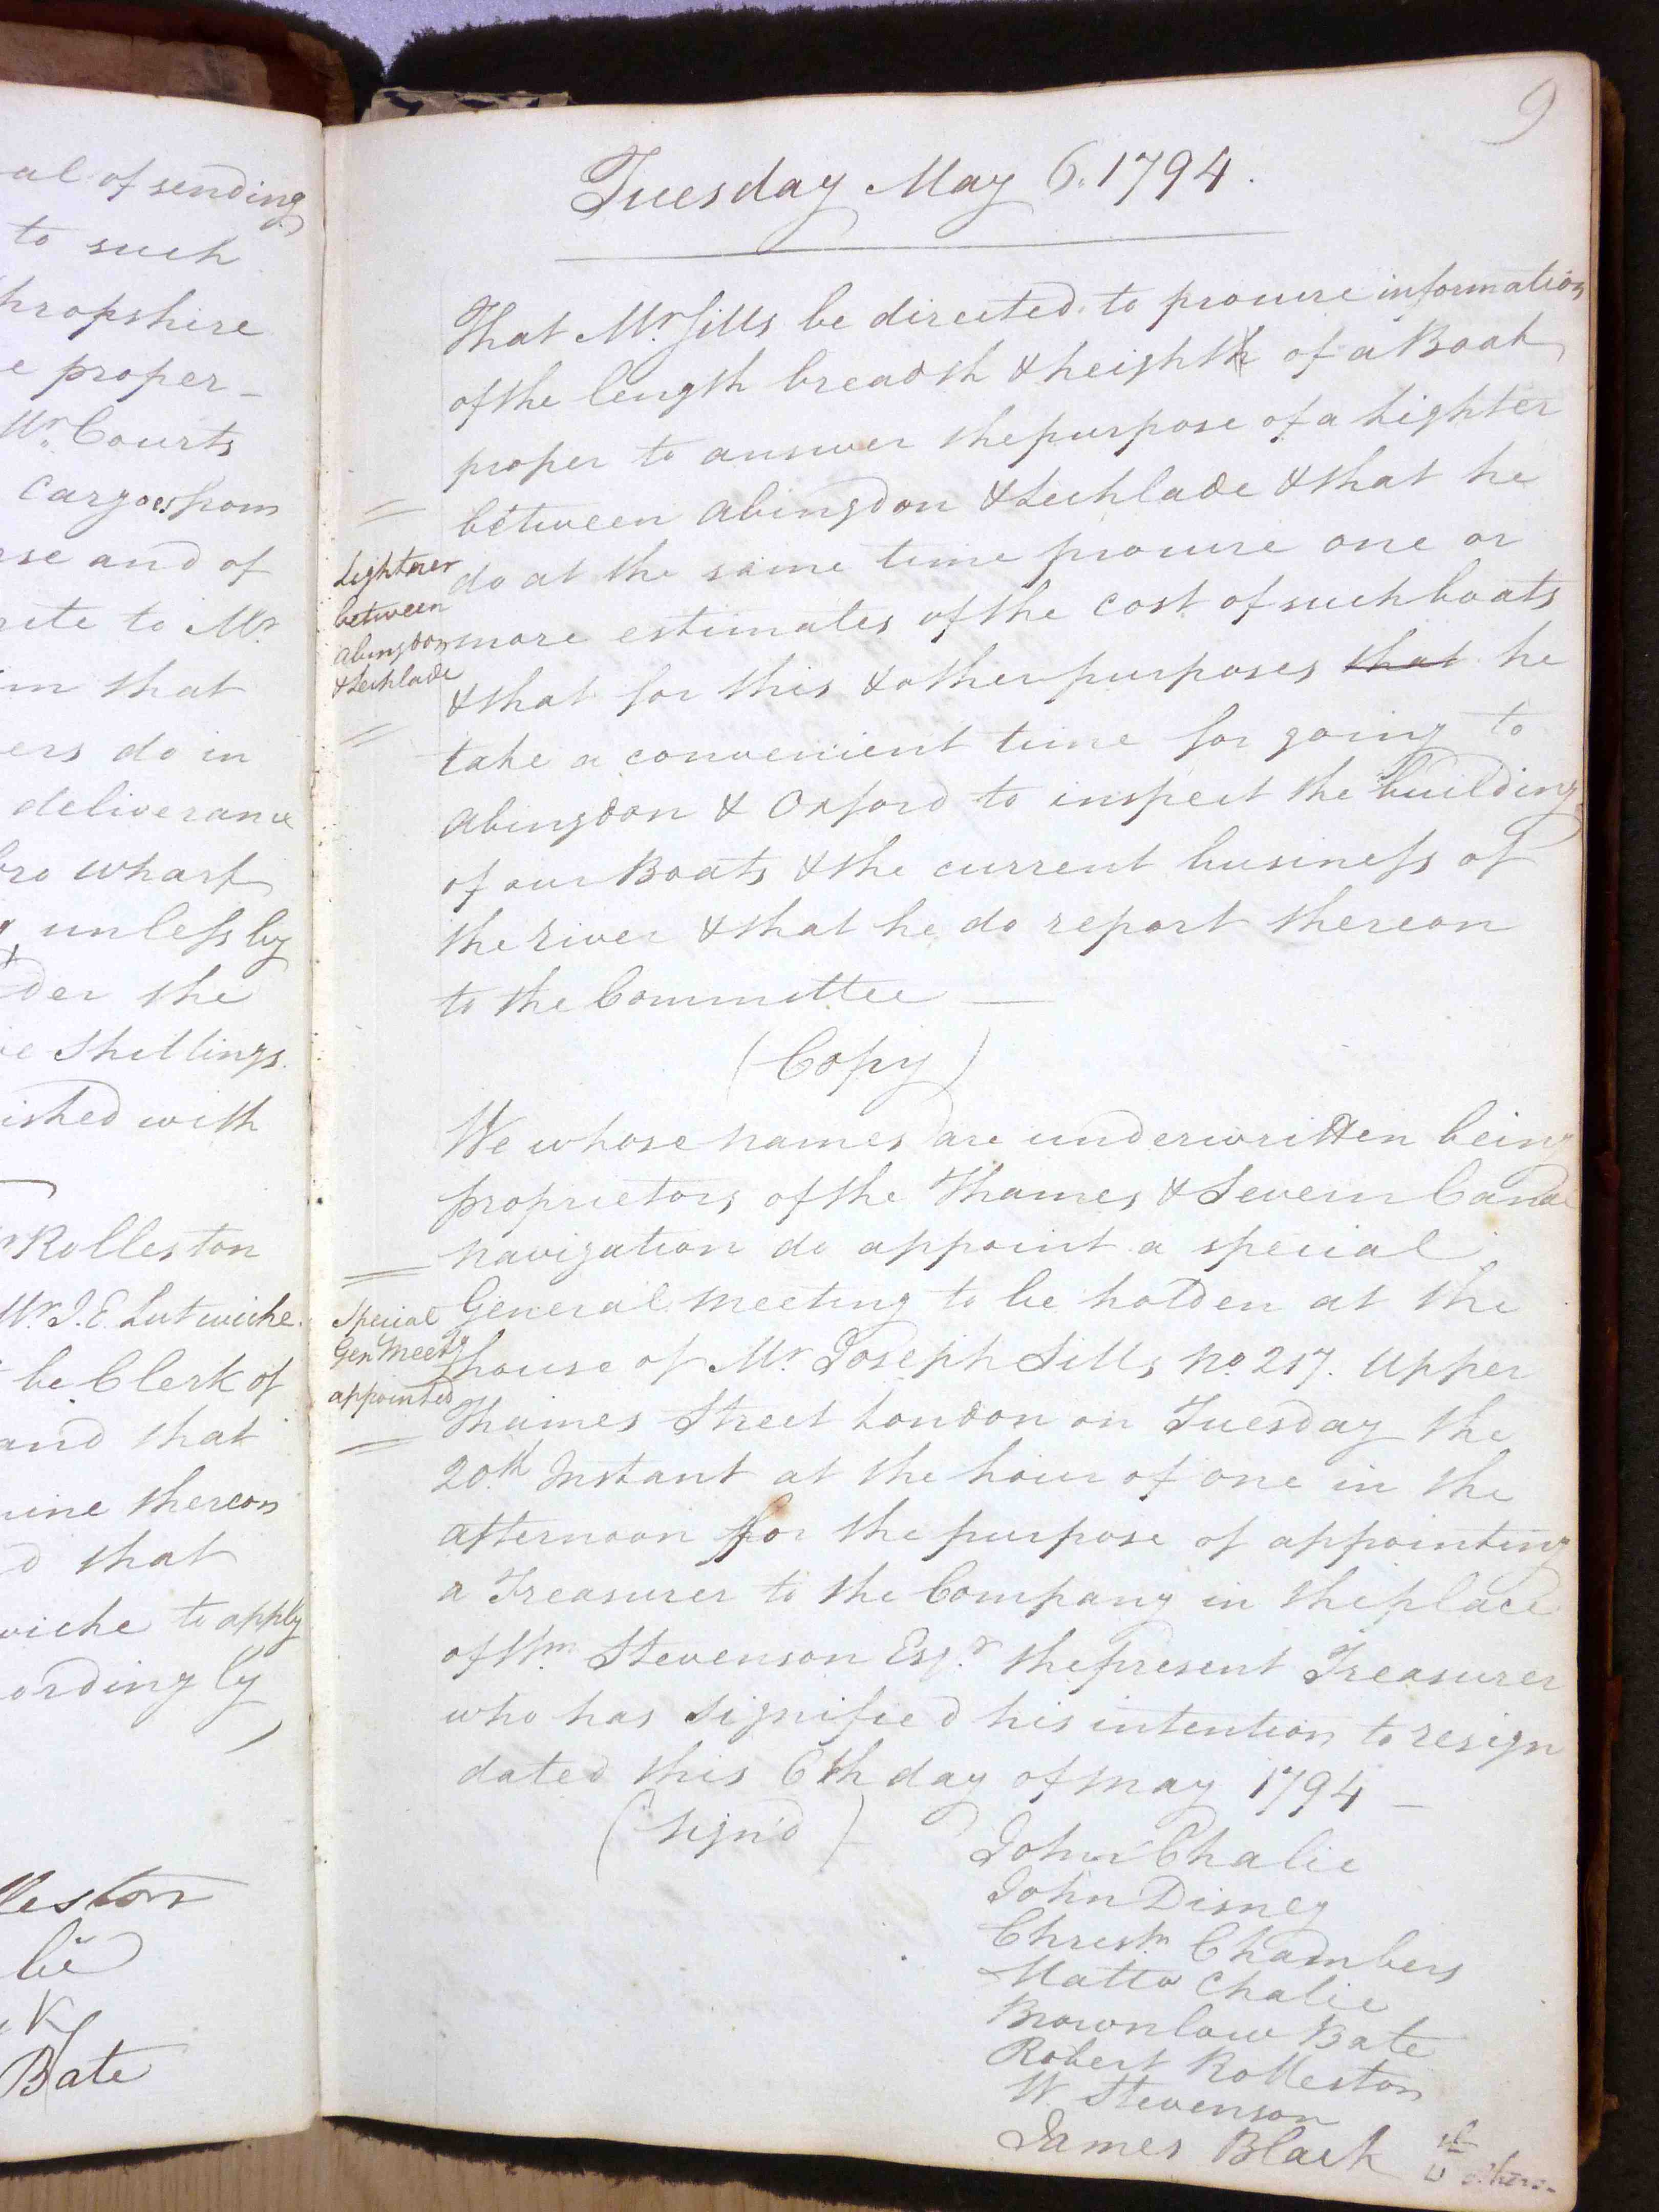 al of sending
to such
hropshire
e proper
Mr. Courts
Cargoes from
rse and of
rite to Mr
im that
ers do in
deliverance
bro wharf
unless by
der the
ve Shillings.
ished with
Rolleston
Mr. J. E. Lutwiche.
be Clerk of
and that
mine thereon
d that
wiche to apply
ordingly
lleston
lie
k
Bate
9
Tuesday May 6. 1794.
That Mr. Sills be directed to procure information
of the length breadth & height of a Boat
proper to answer the purpose of a Lighter
between Abingdon & Lechlade & that he
do at the same time procure one or
more estimates of the cost of such boats
& that for this & other purposes that he
take a convenient time for going to
Abingdon & Oxford to inspect the building
of our Boats & the current business of
the River & that he do report thereon
to the Committee —
Lightner
between
Abingdon
& Lechlade
(Copy)
We whose names are underwritten being
proprietors of the Thames & Severn Canal
navigation do appoint a special
General meeting to be holden at the
house of Mr Joseph Sills No. 217. Upper
Thames Street London on Tuesday the
20th Instant at the hour of one in the
afternoon for the purpose of appointing
a Treasurer to the Company in the place
of Wm. Stevenson Esqr. the present Treasurer
who has signified his intention to resign
dated this 6th day of May 1794 —
Special
Gen Meetg
appointed
(Sign'd)
John Chalie
John Disney
Christr. Chambers
Mattw Chalie
Brownlow Bate
Robert Rolleston
W. Stevenson
James Black